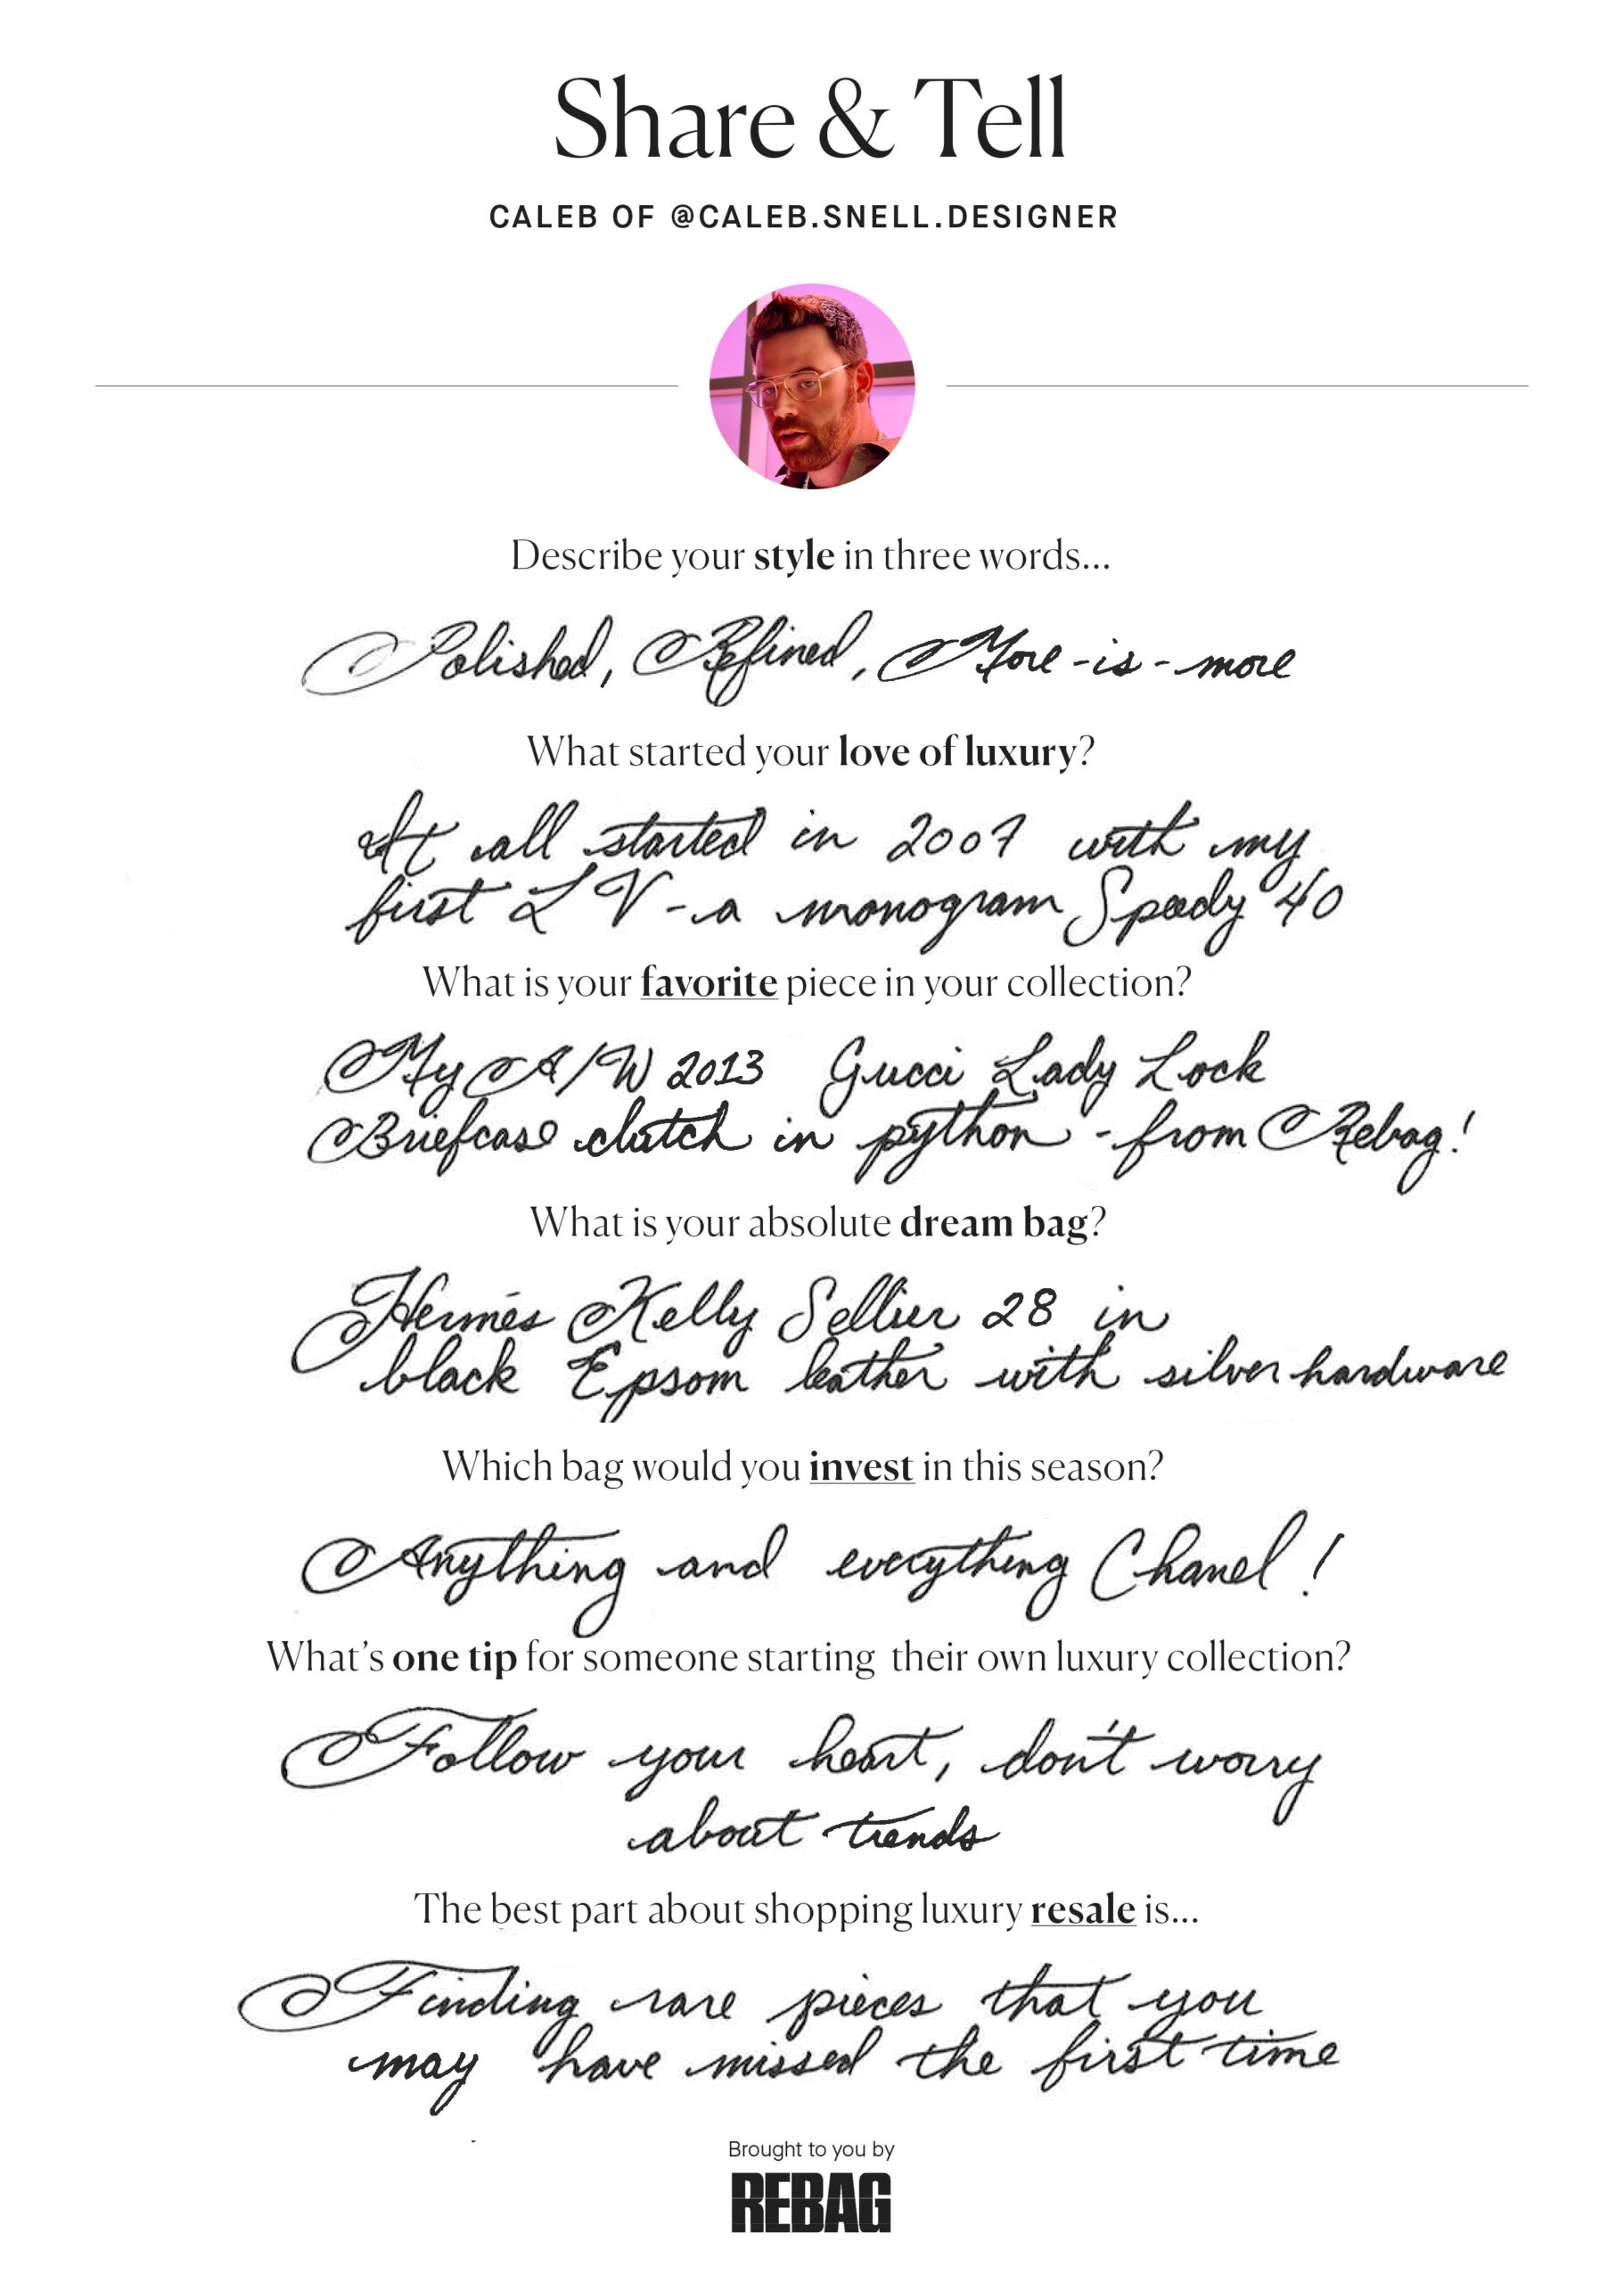 Share & Tell
CALEB OF @CALEB.SNELL.DESIGNER
Describe your style in three words...
Polished, Refined, More-is-more
What started your love of luxury?
It all started in 2007 with my
first LV-a monogram Speedy 40
What is your favorite piece in your collection?
My A/W 2013 Gucci Lady Lock
Briefcase clutch in python - from Rebag!
What is your absolute dream bag?
Hermés Kelly Sellier 28 in
black Epsom leather with silver hardware
Which bag would you invest in this season?
Anything and everything Chanel!
What's one tip for someone starting their own luxury collection?
Follow your heart, don't worry
about trends
The best part about shopping luxury resale is...
Finding rare pieces that you
may have missed the first time
Brought to you by
REBAG